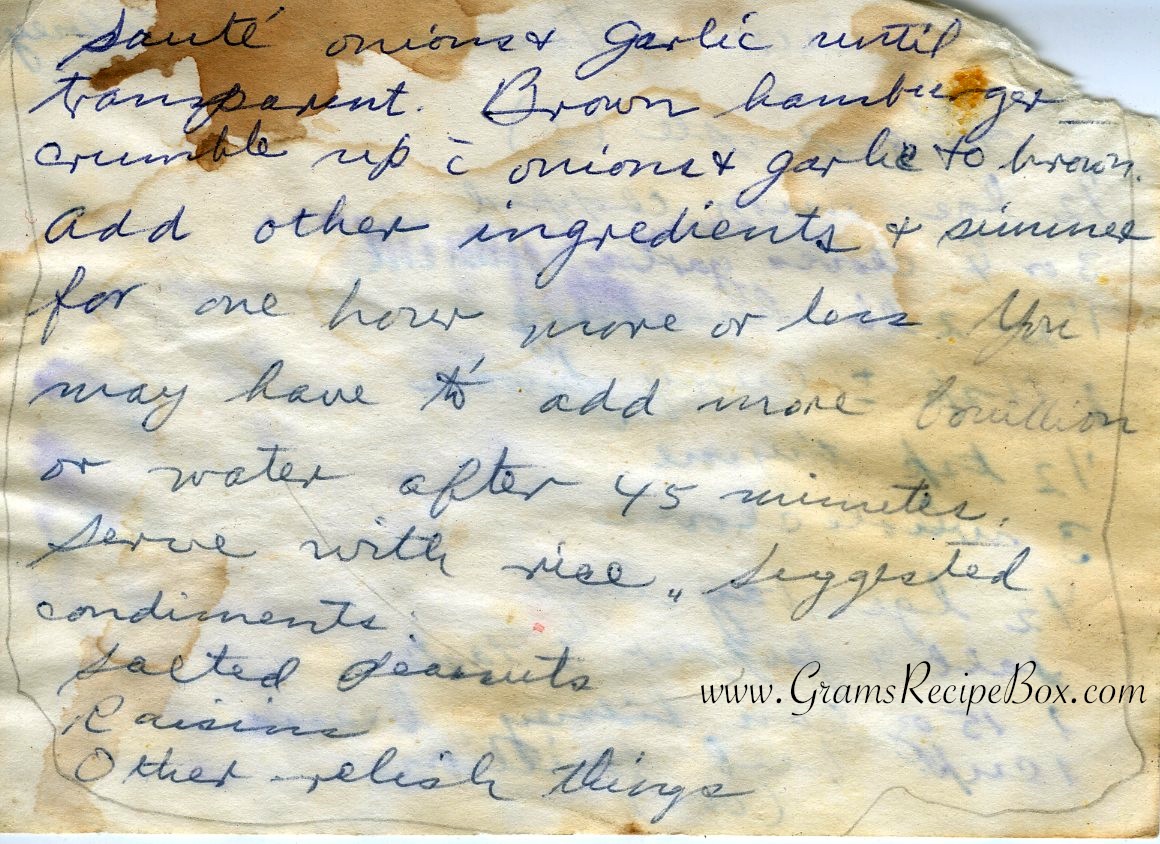 Sauté onions & garlic until
transparent. Brown hamburger
crumble up c̄ onions & garlic to brown.
Add other ingredients & simmer
for one hour more or less. You
may have to add more bouillion
or water after 45 minutes.
Serve with rice „ Suggested
condiments:
Salted peanuts
Raisins
Other relish things
www.GramsRecipeBox.com